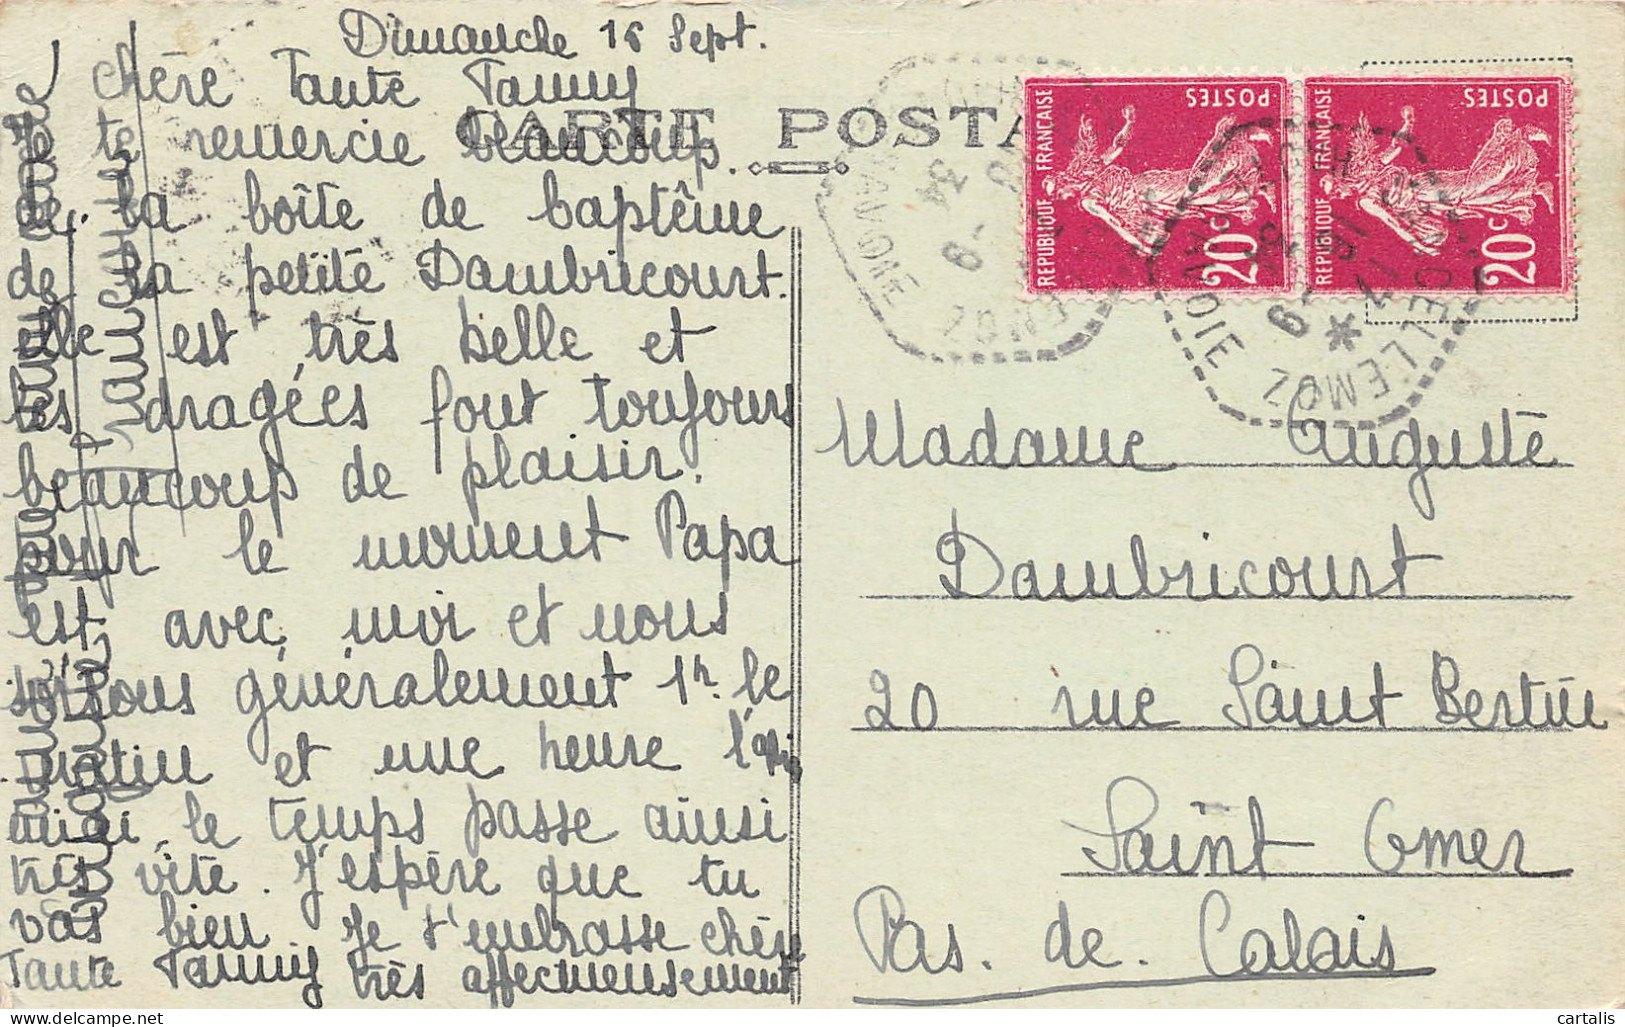 Dimanche 16 Sept.
chère Tante Fanny
CARTE POSTA
te remercie beaucoup.
de la boîte de baptême
de la petite Dambricourt.
elle est très belle et
les dragées font toujours
beaucoup de plaisir.
pour le moment Papa
est avec moi et nous
sortons généralement 1h. le
matin et une heure l'après
midi. le temps passe ainsi
très vite. J'espère que tu
vas bien. Je t'embrasse chère
Tante Fanny très affectueusement
REPUBLIQUE FRANÇAISE
POSTES
20c
REPUBLIQUE FRANÇAISE
POSTES
20c
SAVOIE
34
9
SAVOIE
17
9
Madame Auguste
Dambricourt
20 rue Saint Bertin
Saint Omer
Pas. de. Calais
cartalis